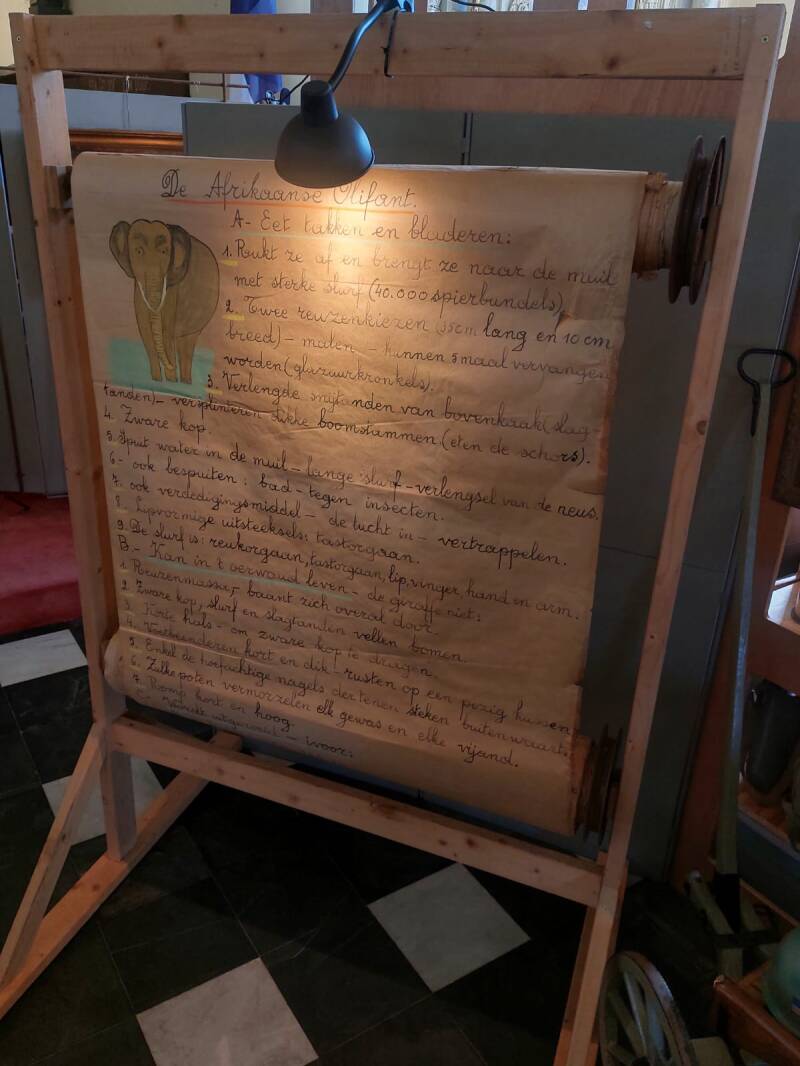 De Afrikaanse Olifant.
A- Eet takken en bladeren:
1. Rukt ze af en brengt ze naar de muil
met sterke slurf (40.000 spierbundels)
2. Twee reuzenkiezen (35cm lang en 10 cm
breed) - malen - kunnen 5 maal vervangen
worden (glazuurkronkels).
3. Verlengde snijtanden van bovenkaak (slag-
tanden) - versplinteren dikke boomstammen (eten de schors).
4. Zware kop.
5. Spuit water in de muil - lange slurf - verlengsel van de neus.
6.- ook bespuiten: bad - tegen insecten.
7. ook verdedigingsmiddel - de lucht in - vertrappelen.
8. Lipvormige uitsteeksels: tastorgaan.
9. De slurf is: reukorgaan, tastorgaan, lip, vinger, hand en arm.
B.- Kan in 't oerwoud leven - de giraffe niet:
1. Reuzenmassa,- baant zich overal door.
2. Zware kop, slurf en slagtanden vellen bomen.
3. Korte hals - om zware kop te dragen.
4. kort en dik - rusten op een pezig kussen
5. Enkel de hoefachtige nagels der tenen steken buitenwaarts.
6. Zulke poten vermorzelen elk gewas en elke vijand.
7. Romp kort en hoog.
C - Wordt uitgeroeid - ivoor.